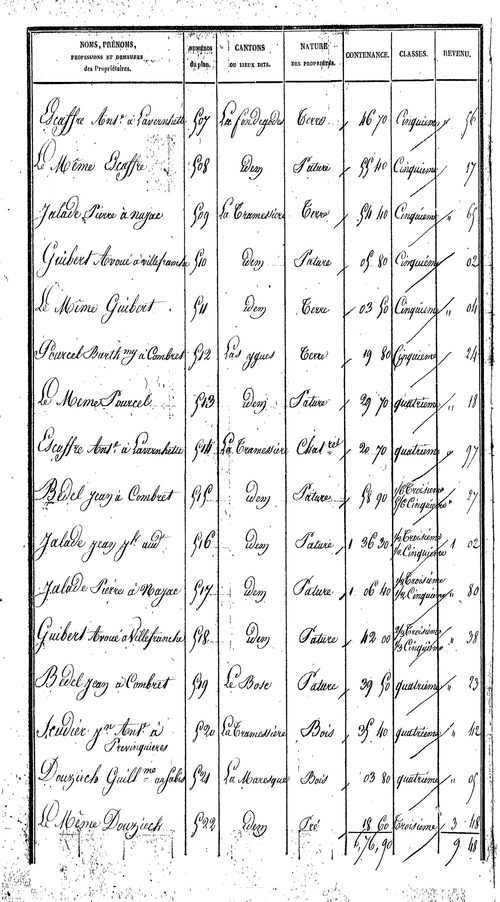 NOMS, PRÉNOMS, PROFESSIONS ET DEMEURES des Propriétaires. NUMÉROS du plan. CANTONS OU LIEUX DITS. NATURE DES PROPRIÉTÉS. CONTENANCE. CLASSES. REVENU.
Escaffre Ant.e à Lavernhette 507 La fondegode Terre 46 70 Cinquième " 56
Le Même Escaffre 508 idem Pature 55 40 Cinquième 17
Jalade Pierre à najac 509 La Tramessière Terre 54 40 Cinquième " 65
Guibert Avoué à villefranche 510 idem Pature 05 80 Cinquième 02
Le Même Guibert 511 idem Terre 03 50 Cinquième " 04
Pourcel Barth.my à Combret 512 Las ygues Terre 19 80 Cinquième " 24
Le Même Pourcel 513 idem Pature 29 70 quatrième " 18
Escaffre Ant.e à Lavernhette 514 La Tramessière Chat.ret 20 70 quatrième " 97
Bedel Jean à Combret 515 idem Pature 58 90 Troisième Cinquième " 27
Jalade jean 516 idem Pature 1 36 30 1/2 Troisième 1/2 Cinquième 1 02
Jalade Pierre à Najac 517 idem Pature 1 06 40 1/2 Troisième 1/2 Cinquième " 80
Guibert Avoué à Villefranche 518 idem Pature 42 00 Troisième Cinquième " 38
Bedel Jean à Combret 519 Le Bosc Pature 39 50 quatrième " 23
jn Ant.e à Previnquieres 520 La Tramessière Bois 35 40 quatrième " 42
Douziech Guill.me 521 La Maresque Bois 03 80 quatrième " 05
Le Même Douziech 522 idem Pré 18 60 Troisième 3 48
76, 90 9 48